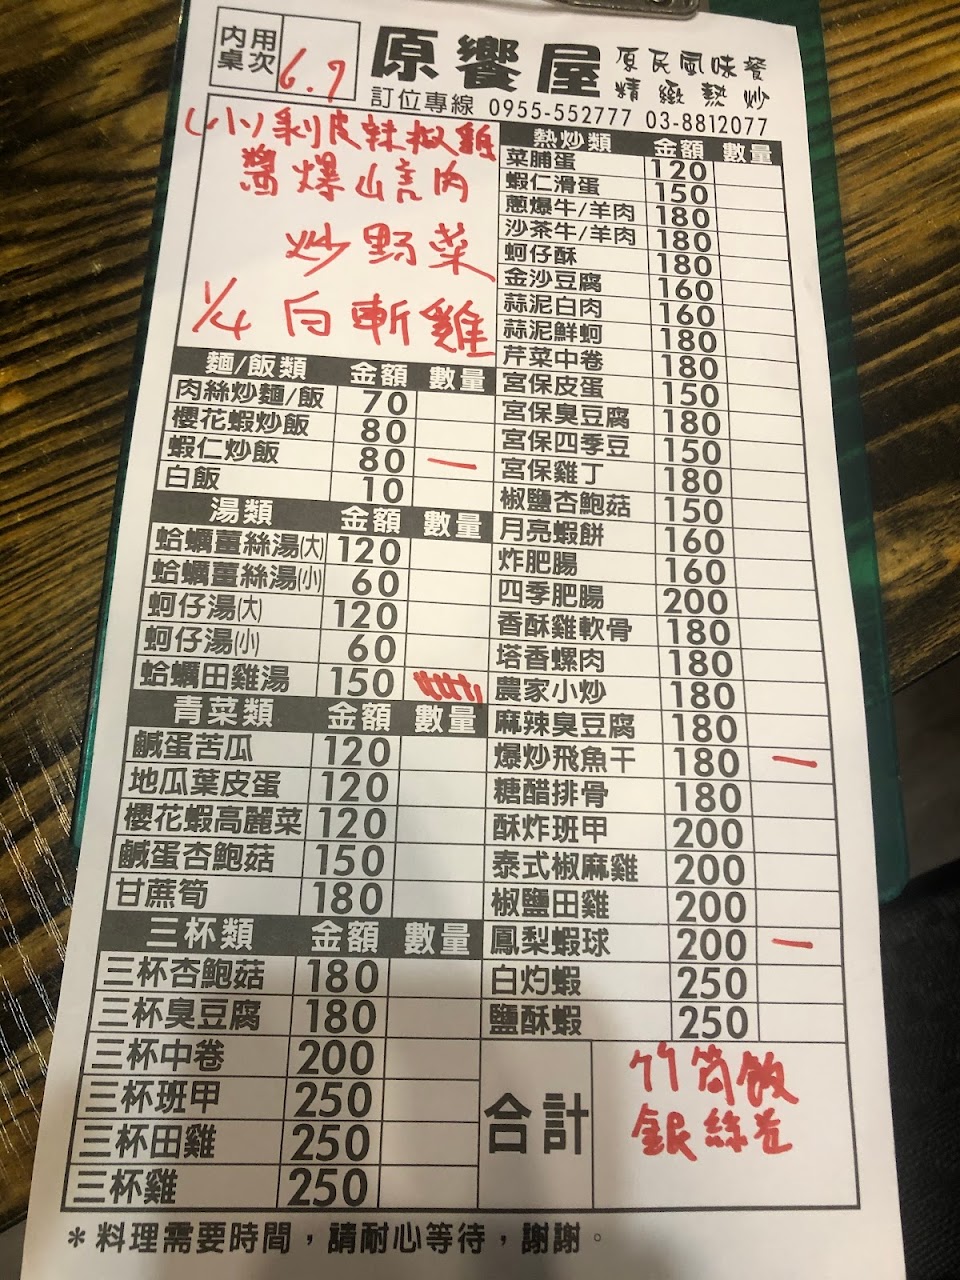 內用
桌次
6.7
原饗屋
原民風味餐
精緻熱炒
訂位專線 0955-552777 03-8812077
(小)剝皮辣椒雞
醬爆山豬肉
炒野菜
1/4 白斬雞
麵/飯類 金額 數量
肉絲炒麵/飯 70
櫻花蝦炒飯 80
蝦仁炒飯 80 一
白飯 10
湯類 金額 數量
蛤蠣薑絲湯(大) 120
蛤蠣薑絲湯(小) 60
蚵仔湯(大) 120
蚵仔湯(小) 60
蛤蠣田雞湯 150
青菜類 金額 數量
鹹蛋苦瓜 120
地瓜葉皮蛋 120
櫻花蝦高麗菜 120
鹹蛋杏鮑菇 150
甘蔗筍 180
三杯類 金額 數量
三杯杏鮑菇 180
三杯臭豆腐 180
三杯中卷 200
三杯班甲 250
三杯田雞 250
三杯雞 250
熱炒類 金額 數量
菜脯蛋 120
蝦仁滑蛋 150
蔥爆牛/羊肉 180
沙茶牛/羊肉 180
蚵仔酥 180
金沙豆腐 160
蒜泥白肉 160
蒜泥鮮蚵 180
芹菜中卷 180
宮保皮蛋 150
宮保臭豆腐 180
宮保四季豆 150
宮保雞丁 180
椒鹽杏鮑菇 150
月亮蝦餅 160
炸肥腸 160
四季肥腸 200
香酥雞軟骨 180
塔香螺肉 180
農家小炒 180
麻辣臭豆腐 180
爆炒飛魚干 180 一
糖醋排骨 180
酥炸班甲 200
泰式椒麻雞 200
椒鹽田雞 200
鳳梨蝦球 200 一
白灼蝦 250
鹽酥蝦 250
合計
竹筒飯
銀絲卷
＊料理需要時間，請耐心等待，謝謝。